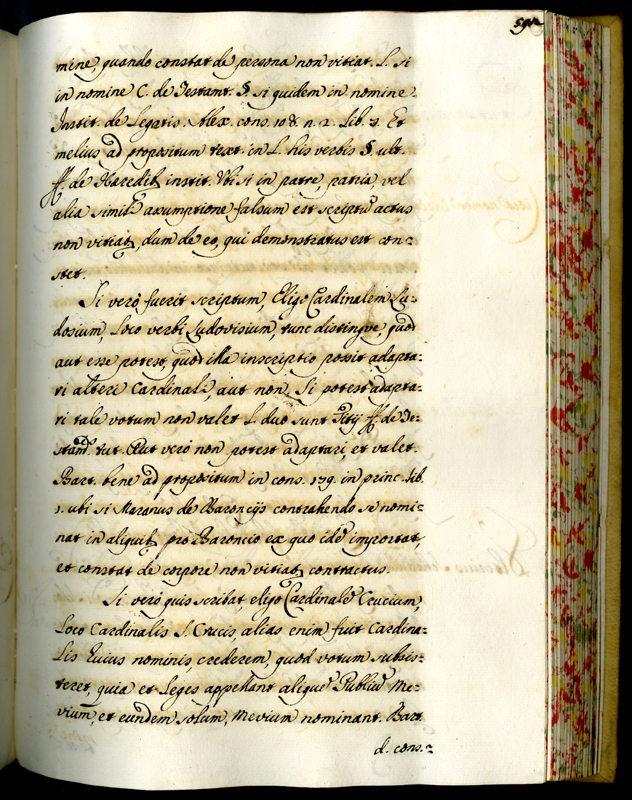 mine, quando constat de persona non vitiat. L. si
in nomine C. de Testamt. §. si quidem in nomine
Instit. de Legatis. Alex. cons. 108. n. 2. Lib. 1. Et
melius ad propositum text. in L. his verbis §. ult.
ff. de Haredib, instit. Vbi si in patre, patria, vel
alia simili assumptione falsum est scriptũ actus
non vitiat, dum de eo, qui demonstratus est con=
stet.
Si verò fuerit scriptum, Eligo Cardinalem Lu=
dosium, Loco verbi Ludovisium, tunc distingue, quod
aut esse potest, quod illa inscriptio possit adapta=
ri alteri Cardinali, aut non. Si potest adapta=
ri tale votum non valet L. duo sunt Titij ff. de Te=
stam. tut. Aut verò non potest adaptari, et valet.
Bart. bene ad propositum in cons. 139. in princ. Lib.
1. ubi si Maranus de Baroncijs contrahendo se nomi=
nat in aliquib, pro Baroncio ex quo idẽ importat,
et constat de corpore non vitiat, contractus.
Si verò quis scribat, eligo Cardinalẽ Crucium,
Loco Cardinalis S. Crucis, alias enim fuit Cardina=
lis huius nominis, crederem, quod votum subsis=
teret, quia et Leges appellant aliquẽ Publiũ Me=
vium, et eundem solum, Mevium nominant. Bart
d. cons.=